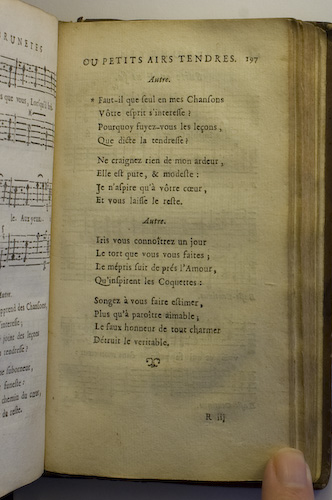 BRUNETES
que vous, Lorsqu'il
le. Aux prez
Autre.
prend des Chansons,
nteresse;
joins des leçons
tendresse?
ne suborneur,
fenelle:
chemin du cœur,
du reste.
OU PETITS AIRS TENDRES. 197
Autre.
* Faut-il que seul en mes Chansons
Vôtre esprit s'interesse?
Pourquoy fuyez-vous les leçons,
Que dicte la tendresse?
Ne craignez rien de mon ardeur,
Elle est pure, & modeste:
Je n'aspire qu'à vôtre cœur,
Et vous laisse le reste.
Autre.
Iris vous connoîtrez un jour
Le tort que vous vous faites;
Le mépris suit de prés l'Amour,
Qu'inspirent les Coquettes:
Songez à vous faire estimer,
Plus qu'à paroître aimable;
Le faux honneur de tout charmer
Détruit le veritable.
R iij